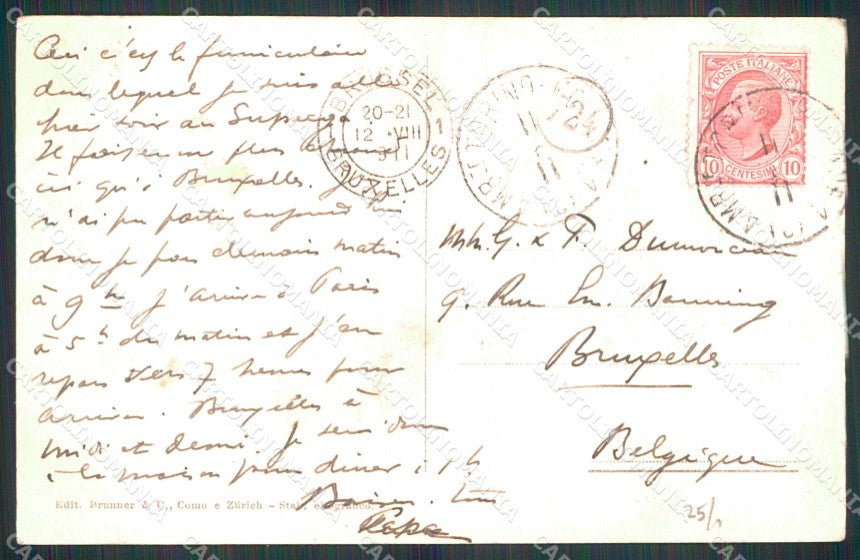 Ceci c'est le funiculaire
dans lequel je suis allé
hier soir au Superga
Il faisait un plus chaud
ici qu'à Bruxelles. Je
n'ai pu partir aujourd'hui
donc je pars demain matin
à 9 h j'arrive à Paris
à 5 h du matin et j'en
repars vers 7 heures pour
arriver Bruxelles à
midi et demi. Je serai donc
à la maison pour diner à 1 h
Baisers.
Papa
Edit. Brunner & C., Como e Zürich - Stab.
BRUSSEL 1
20-21
12 VIII
911
BRUXELLES
124
POSTE ITALIANE
10 CENTESIMI 10
MM. G. & F.
9. Rue Em. Banning
Bruxelles
Belgique
25/
CARTOLINOMANIA